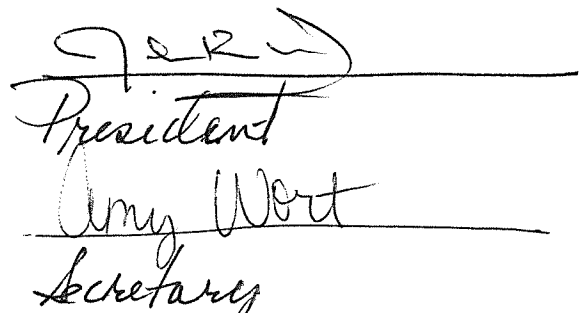 President
Amy Wort
Secretary